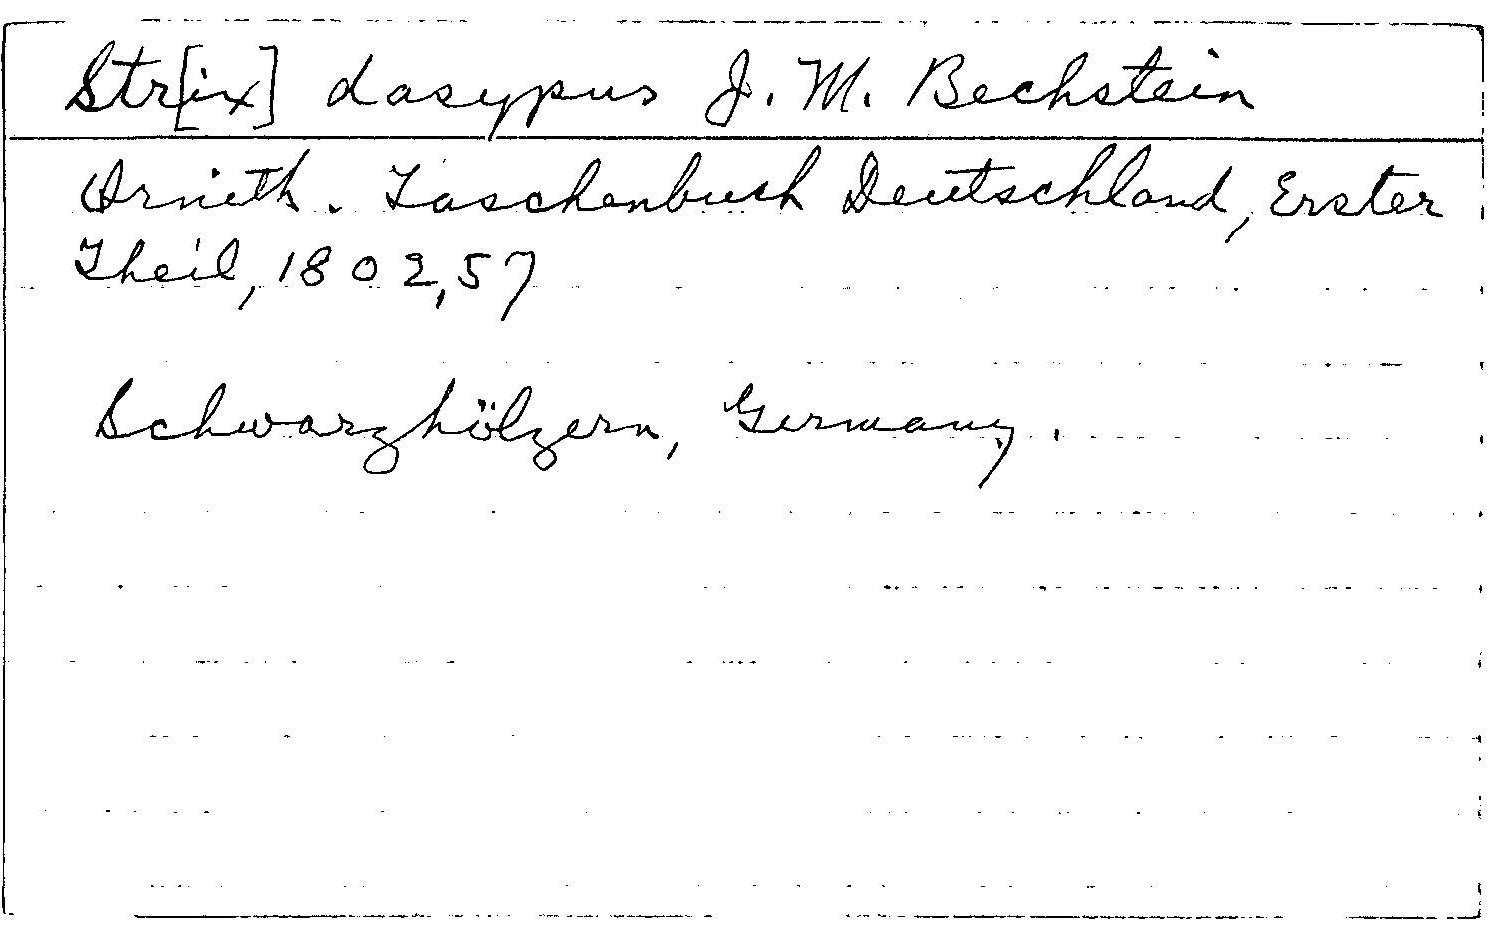 Str[ix] dasypus J. M. Bechstein
Ornith. Taschenbuch Deutschland, Erster
Theil, 1802, 57
Schwarzhölzern, Germany.